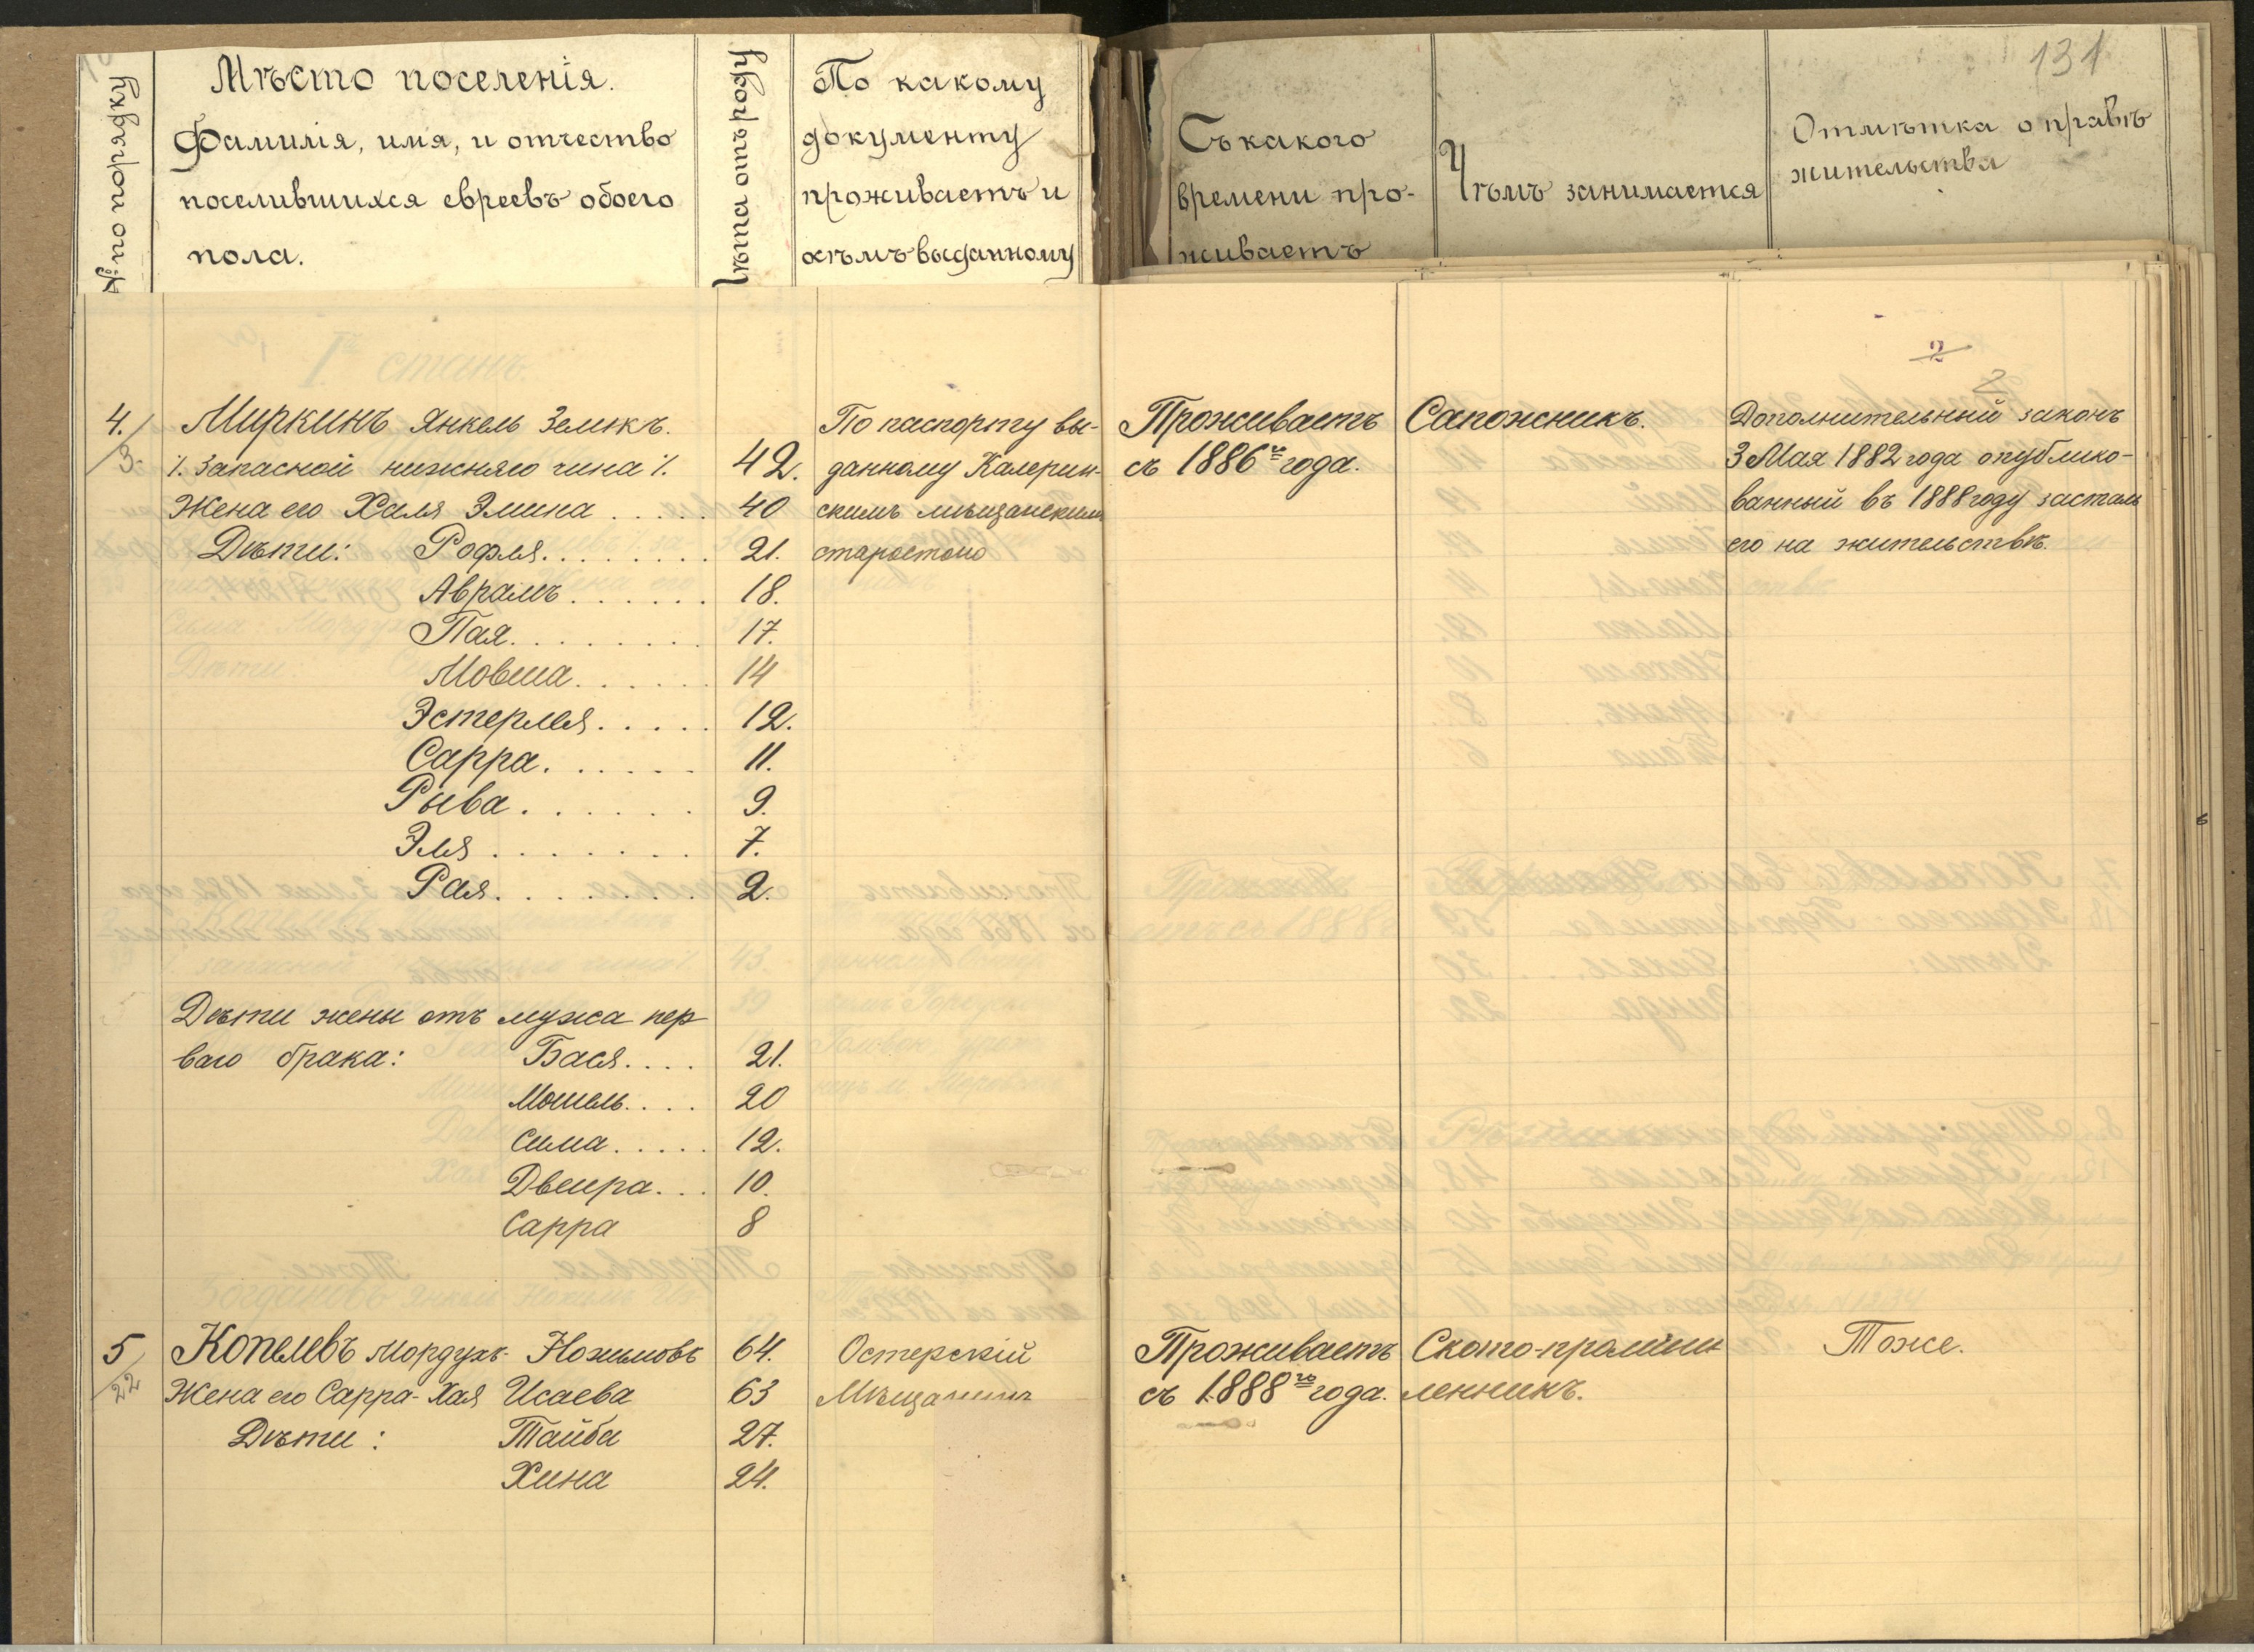 № по порядку
Мѣсто поселенія.
Фамилія, имя, и отчество
поселившихся евреевъ обоего
пола.
Лѣта отъ роду
По какому
документу
проживаетъ и
кѣмъ выданному
Съ какого
времени про-
живаетъ
Чѣмъ занимается
131
Отмѣтка о правѣ
жительства
2
4.
3.
Миркинъ Янкель Зеликъ.
/. Запасной нижняго чина /. 42.
Жена его Халя Элина . . . . . 40
Дѣти: Рофля . . . . . . . . 21.
Аврамъ . . . . . . 18.
Пая . . . . . . . . 17.
Мовша . . . . . . 14
Эстерля . . . . . 12.
Сарра . . . . . . 11.
Рыва . . . . . . 9.
Эля . . . . . . . 7.
Рая . . . . . . . . 2.
Дѣти жены отъ мужа пер
ваго брака: Бася . . . . 21.
Мошель . . . . 20
Сима . . . . . 12.
Двеира . . . 10.
Сарра 8
По паспорту вы-
данному
скимъ мѣщанскимъ
старостою
Проживаетъ
съ 1886го года.
Сапожникъ.
Дополнительный законъ
3 Мая 1882 года опублико-
ванный въ 1888 году засталъ
его на жительствѣ.
5
22
Копелевъ Мордухъ- Нохимовъ 64.
Жена его Сарра-Хая Исаева 63
Дѣти: Тайба 27.
Хина 24.
Остерскій
Мѣщанинъ
Проживаетъ
съ 1888го года.
Ското-промыш
ленникъ.
Тоже.